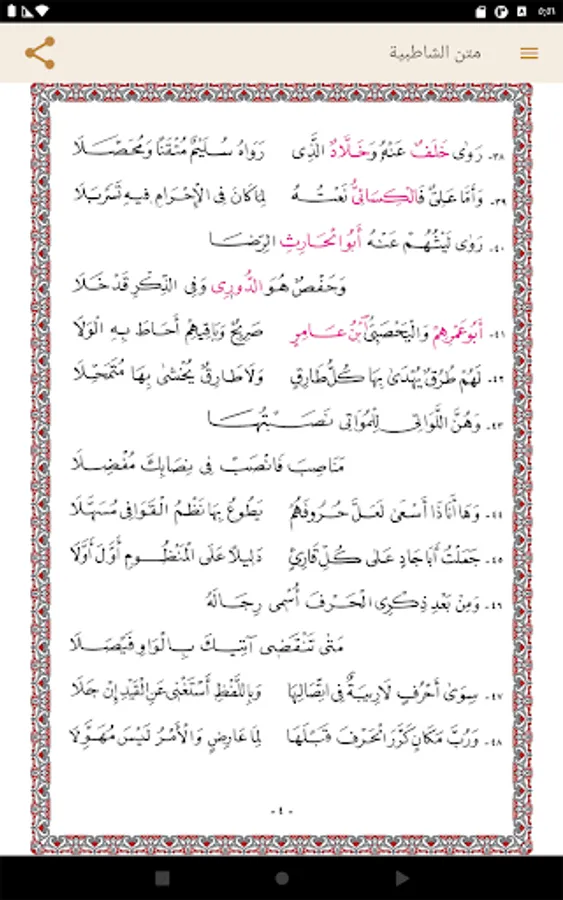 ٥:٤١
متن الشاطبية
٣٨- رَوَى خَلَفٌ عَنْهُ وَخَلَّادٌ الَّذِى رَوَاهُ سُلَيْمٌ مُتْقَنًا وَمُحَصَّلَا
٣٩- وَأَمَّا عَلِىٌّ فَالْكِسَائِىُّ نَعْتُهُ لِمَا كَانَ فِى الْإِحْرَامِ فِيهِ تَسَرْبَلَا
٤٠- رَوَى لَيْثُهُمْ عَنْهُ أَبُو الْحَارِثِ الرِّضَا
وَحَفْصٌ هُوَ الدُّورِى وَفِى الذِّكْرِ قَدْ خَلَا
٤١- أَبُو عَمْرِهِمْ وَالْيَحْصَبِىُّ ابْنُ عَامِرٍ صَرِيحٌ وَبَاقِيهِمْ أَحَاطَ بِهِ الْوَلَا
٤٢- لَهُمْ طُرُقٌ يُهْدَى بِهَا كُلُّ طَارِقٍ وَلَا طَارِقٌ يُخْشَى بِهَا مُتَمَحِّلَا
٤٣- وَهُنَّ اللَّوَاتِى لِلْمُوَاتِى نَصَبْتُهَا
مَنَاصِبَ فَانْصَبْ فِى نِصَابِكَ مُفْضِلَا
٤٤- وَهَا أَنَا ذَا أَسْعَى لَعَلَّ حُرُوفَهُمْ يَطُوعُ بِهَا نَظْمُ الْقَوَافِى مُسَهَّلَا
٤٥- جَعَلْتُ أَبَا جَادٍ عَلَى كُلِّ قَارِئٍ دَلِيلًا عَلَى الْمَنْظُومِ أَوَّلَ أَوَّلَا
٤٦- وَمِنْ بَعْدِ ذِكْرِى الْحَرْفَ أُسْمِى رِجَالَهُ
مَتَى تَنْقَضِى آتِيكَ بِالْوَاوِ فَيْصَلَا
٤٧- سِوَى أَحْرُفٍ لَا رِيبَةٌ فِى اتِّصَالِهَا وَبِاللَّفْظِ أَسْتَغْنِى عَنِ الْقَيْدِ إِنْ جَلَا
٤٨- وَرُبَّ مَكَانٍ كَرَّرَ الْحَرْفَ قَبْلَهَا لِمَا عَارِضٍ وَالْأَمْرُ لَيْسَ مُهَوِّلَا
- ٤ -